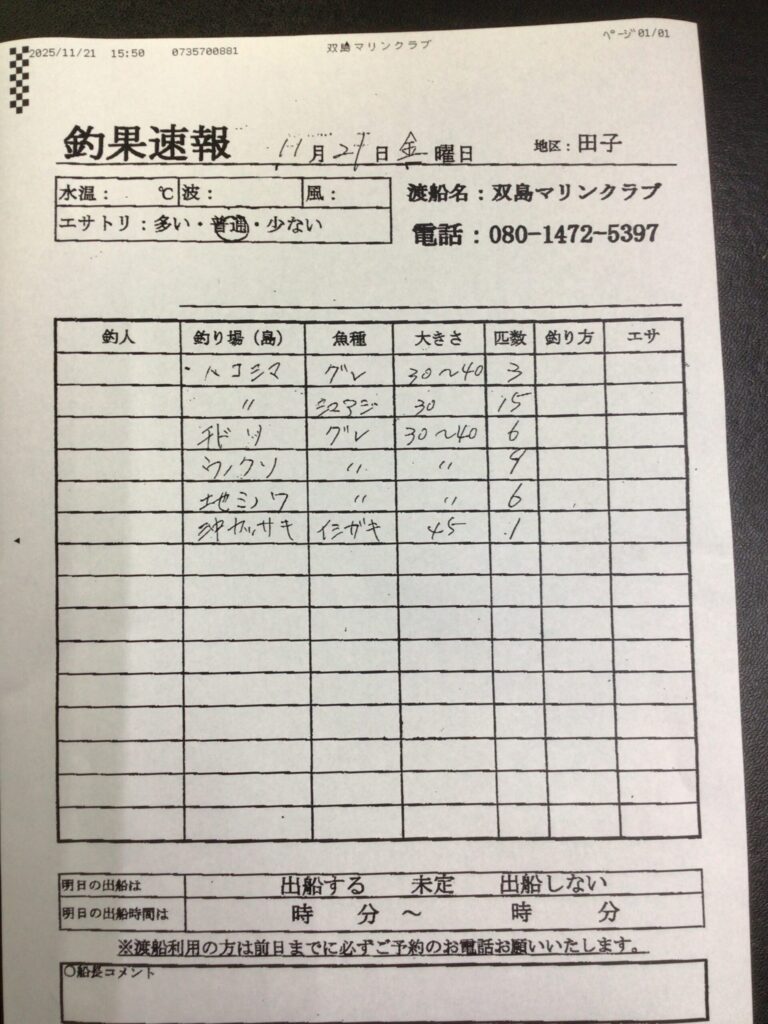 2025/11/21 15:50 0735700881 双島マリンクラブ ページ 01/01
釣果速報 11月21日金曜日 地区：田子
水温： ℃ 波： 風： 渡船名：双島マリンクラブ
エサトリ：多い・普通・少ない 電話：080-1472-5397
釣人 釣り場（島） 魚種 大きさ 匹数 釣り方 エサ
ハコシマ グレ 30〜40 3
〃 シマアジ 30 15
チドリ グレ 30〜40 6
ウノクソ 〃 〃 9
地ミノワ 〃 〃 6
沖 イシガキ 45 1
明日の出船は 出船する 未定 出船しない
明日の出船時間は 時 分 〜 時 分
※渡船利用の方は前日までに必ずご予約のお電話お願いいたします。
○船長コメント